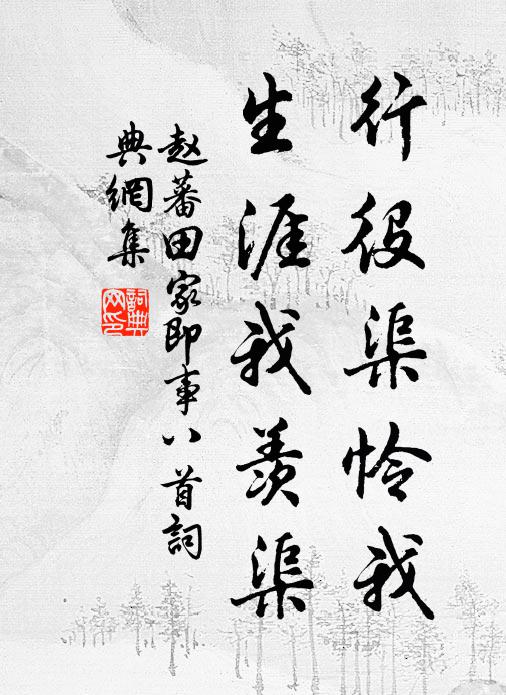 行役渠怜我
生涯我羨渠
赵蕃田家即事八首詞
典網集
詞典
网印